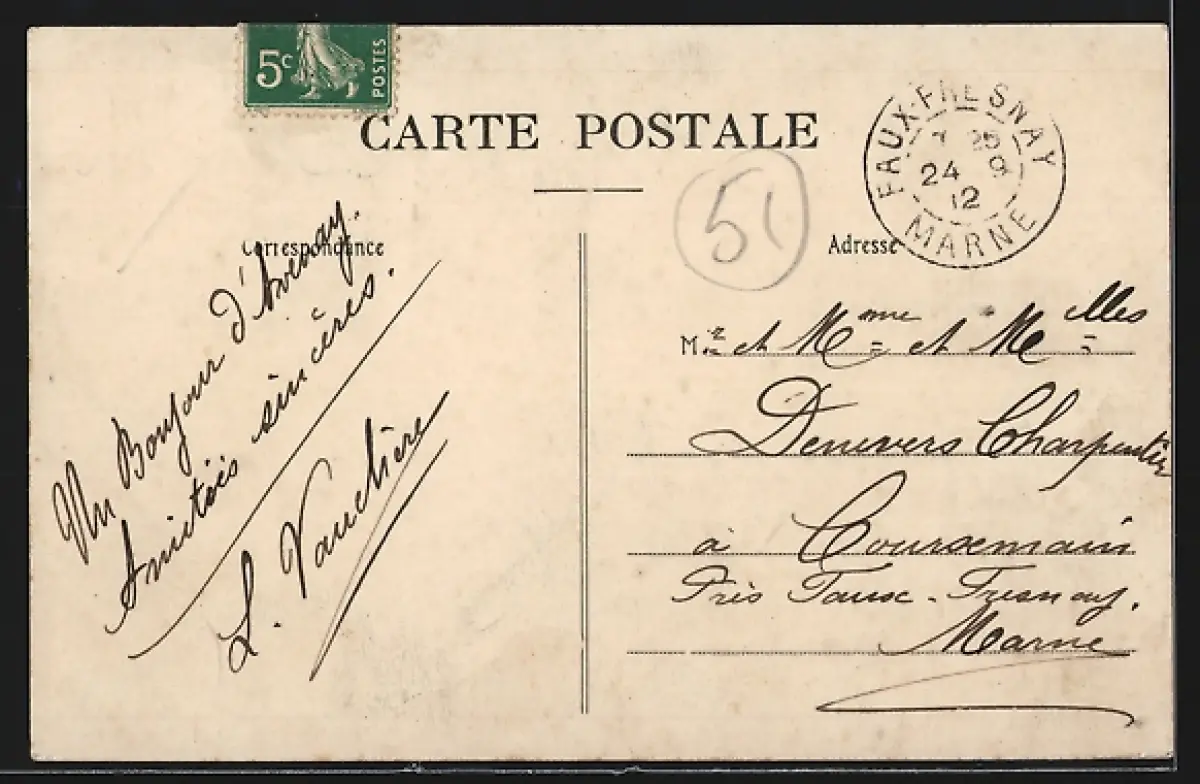 5c
POSTES
CARTE POSTALE
FAUX-FRESNAY
7 25
24 9
12
MARNE
51
Correspondance
Adresse
Un Bonjour d'Avenay.
Amitiés sincères.
L. Vauchère
M.r et Mme et Melles
Denevers Charpentier
à Coursemain
Près Faux-Fresnay.
Marne